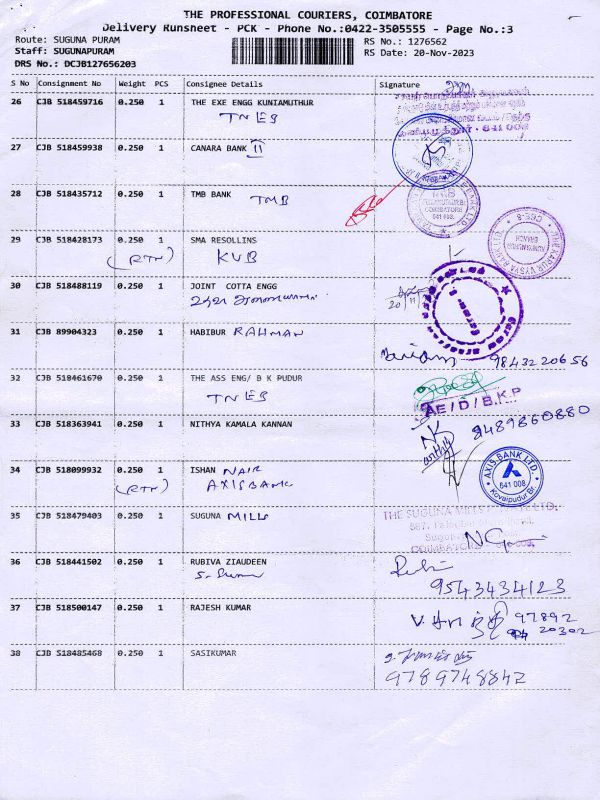 THE PROFESSIONAL COURIERS, COIMBATORE
Delivery Runsheet - PCK - Phone No.:0422-3505555 - Page No.:3
Route: SUGUNA PURAM RS No.: 1276562
Staff: SUGUNAPURAM RS Date: 20-Nov-2023
DRS No.: DCJB127656203
S No Consignment No Weight PCS Consignee Details Signature
26 CJB 518459716 0.250 1 THE EXE ENGG KUNIAMUTHUR
TNEB
641 008
27 CJB 518459938 0.250 1 CANARA BANK II
28 CJB 518435712 0.250 1 TMB BANK TMB
COIMBATORE
641 008
29 CJB 518428173 0.250 1 SMA RESOLLINS
(RTN) KVB
THE KARUR VYSYA BANK LTD. CBE-8
KUNIYAMUTHUR
BRANCH
30 CJB 518488119 0.250 1 JOINT COTTA ENGG
20/11
31 CJB 89904323 0.250 1 HABIBUR RAHMAN
Mariam 9843220656
32 CJB 518461670 0.250 1 THE ASS ENG/ B K PUDUR
TNEB
AE/D/B.K.P
33 CJB 518363941 0.250 1 NITHYA KAMALA KANNAN
9489860880
34 CJB 518099932 0.250 1 ISHAN NAIR
(RTN) AXIS BANK
AXIS BANK LTD.
641 008
Kovaipudur Br.
35 CJB 518479403 0.250 1 SUGUNA MILLS
THE SUGUNA MILLS
COIMBATORE
36 CJB 518441502 0.250 1 RUBIVA ZIAUDEEN
9543434123
37 CJB 518500147 0.250 1 RAJESH KUMAR
97892
20302
38 CJB 518485468 0.250 1 SASIKUMAR
9789748842